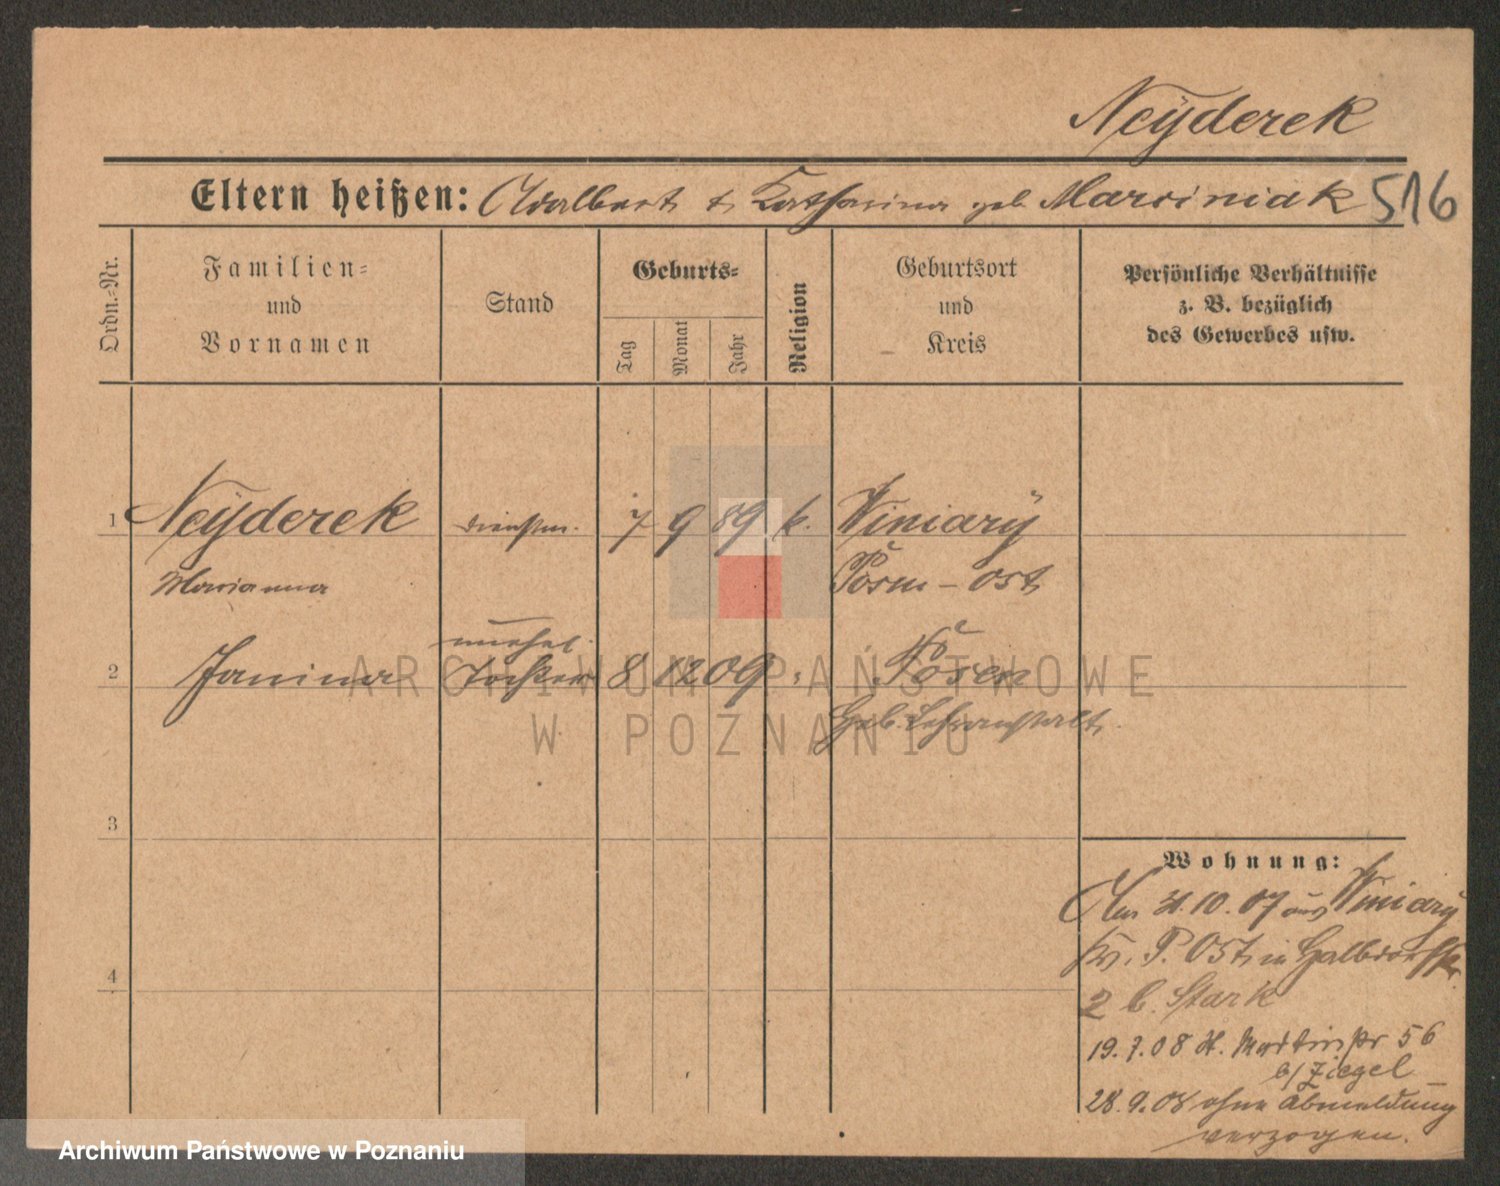 Neÿderek
Eltern heißen: Adalbert & Katharina geb. Marciniak 516
Ordn.-Nr.
Familien-
und
Vornamen
Stand
Geburts-
Tag
Monat
Jahr
Religion
Geburtsort
und
Kreis
Persönliche Verhältnisse
z. B. bezüglich
des Gewerbes usw.
1 Neÿderek dienstm. 7 9 89 k. Winiarÿ
Marianna Posen-Ost
unehel.
2 Janina Tochter 8 12 09 Posen
Geb. Lehranstalt.
3
4
Wohnung:
Am 21.10.07 aus Winiarÿ
Kr. P. Ost in
2 b. Stark
19.7.08 St. Martinstr 56
b/ Ziegel
28.9.08 ohne Abmeldung
verzogen.
ARCHIWUM PAŃSTWOWE
W POZNANIU
Archiwum Państwowe w Poznaniu